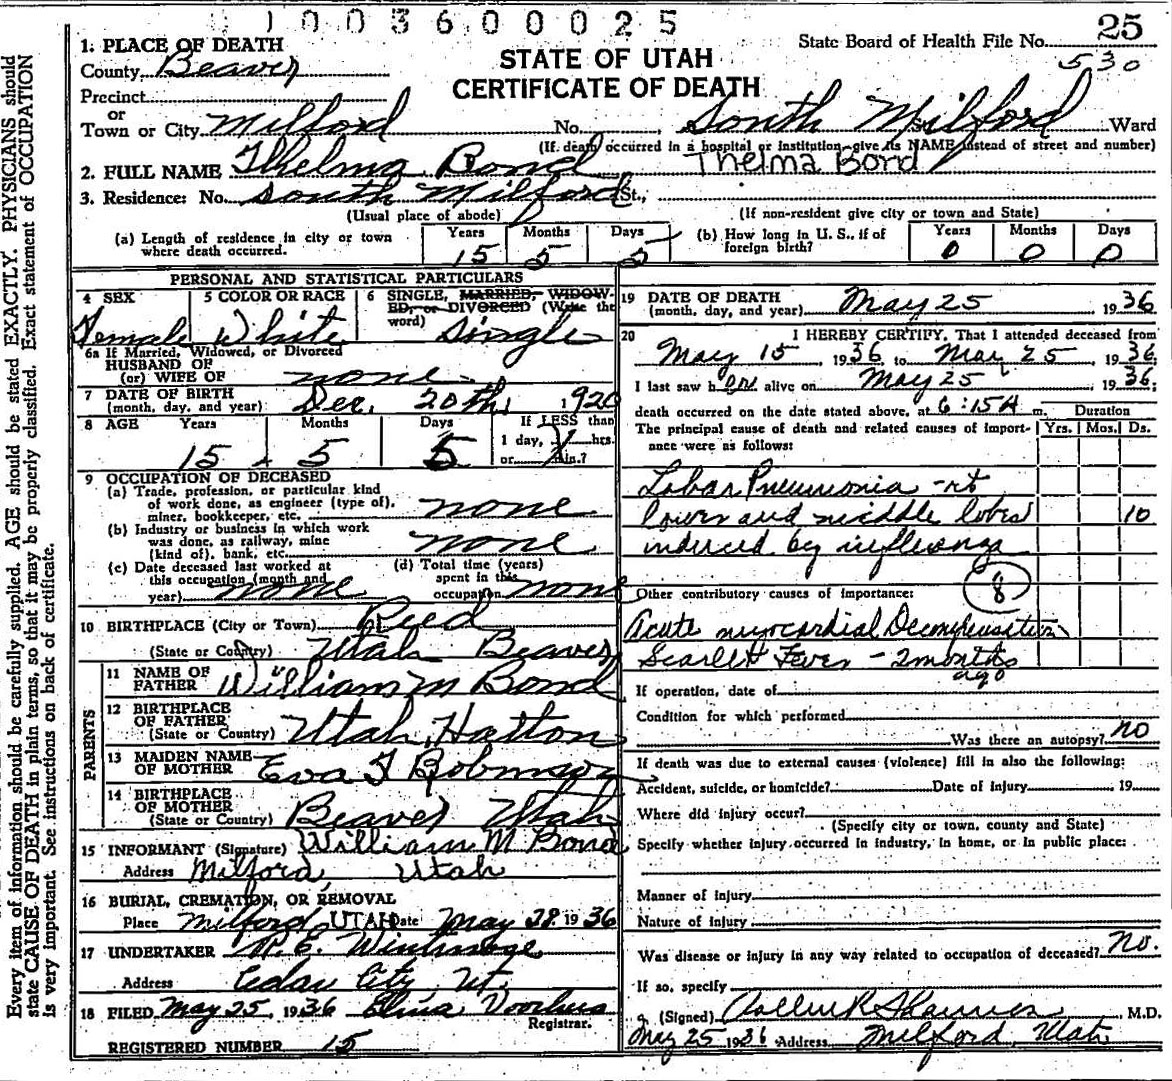 1003600025
25
State Board of Health File No.
530
STATE OF UTAH
CERTIFICATE OF DEATH
1. PLACE OF DEATH
County Beaver
Precinct
or
Town or City Milford No. , South Milford St. Ward
(If death occurred in a hospital or institution give its NAME instead of street and number)
2. FULL NAME Thelma Bond Thelma Bond
3. Residence: No. South Milford St.,
(Usual place of abode) (If non-resident give city or town and State)
(a) Length of residence in city or town where death occurred. Years 15 Months 5 Days 5
(b) How long in U. S., if of foreign birth? Years 0 Months 0 Days 0
PERSONAL AND STATISTICAL PARTICULARS
4 SEX Female
5 COLOR OR RACE White
6 SINGLE, MARRIED, WIDOWED, or DIVORCED (Write the word) Single
6a If Married, Widowed, or Divorced
HUSBAND OF
(or) WIFE OF none
7 DATE OF BIRTH
(month, day, and year) Dec. 20th, 1920
8 AGE Years 15 Months 5 Days 5 If LESS than 1 day, hrs. or min.?
9 OCCUPATION OF DECEASED
(a) Trade, profession, or particular kind
of work done, as engineer (type of),
miner, bookkeeper, etc. none
(b) Industry or business in which work
was done, as railway, mine
(kind of), bank, etc. none
(c) Date deceased last worked at
this occupation (month and
year) none
(d) Total time (years)
spent in this
occupation none
10 BIRTHPLACE (City or Town) Reed
(State or Country) Utah Beaver
PARENTS
11 NAME OF FATHER William M Bond
12 BIRTHPLACE OF FATHER
(State or Country) Utah, Hatton
13 MAIDEN NAME OF MOTHER Eva F Robinson
14 BIRTHPLACE OF MOTHER
(State or Country) Beaver Utah
15 INFORMANT (Signature) William M Bond
Address Milford, Utah
16 BURIAL, CREMATION, OR REMOVAL
Place Milford, UTAH Date May 28, 1936
17 UNDERTAKER
Address Cedar City, Ut.
18 FILED May 25, 1936 Elma Voorhees
Registrar.
REGISTERED NUMBER 15
19 DATE OF DEATH
(month, day, and year) May 25 1936
20 I HEREBY CERTIFY, That I attended deceased from
May 15 1936 to May 25, 1936
I last saw her alive on May 25 1936;
death occurred on the date stated above, at 6:15A m.
Duration
The principal cause of death and related causes of importance were as follows: Yrs. Mos. Ds.
Lobar Pneumonia - rt
lower and middle lobes 10
induced by influenza
8
Other contributory causes of importance:
Acute myocardial Decompensation
Scarlet Fever - 2 months
ago
If operation, date of
Condition for which performed
Was there an autopsy? no
If death was due to external causes (violence) fill in also the following:
Accident, suicide, or homicide? Date of injury 19
Where did injury occur?
(Specify city or town, county and State)
Specify whether injury occurred in industry, in home, or in public place:
Manner of injury
Nature of injury
Was disease or injury in any way related to occupation of deceased? No.
If so, specify
(Signed) M.D.
May 25 1936 Address Milford, Utah
Every item of information should be carefully supplied. AGE should be stated EXACTLY. PHYSICIANS should
state CAUSE OF DEATH in plain terms, so that it may be properly classified. Exact statement of OCCUPATION
is very important. See instructions on back of certificate.